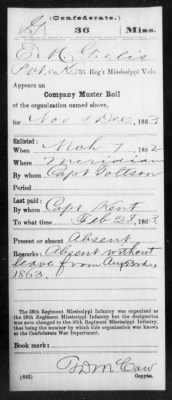 (Confederate.)
36 Miss.
E. M.
Pvt, Co. K, 36 Reg't Mississippi Vols.
Appears on
Company Muster Roll
of the organization named above,
for Nov & Dec, 1863
Enlisted:
When Mch 7, 1862
Where Meridian
By whom Capt
Period
Last paid:
By whom Capt. Kent
To what time Feb 28, 1863
Present or absent Absent
Remarks: Absent without
leave from Aug
1863.
The 36th Regiment Mississippi Infantry was organized as
the Regiment Mississippi Infantry but the designation
was soon changed to the 36th Regiment Mississippi Infantry,
that being the number by which this organization was known
at the Confederate War Department.
Book mark:
McCaw
(642) Copyist.